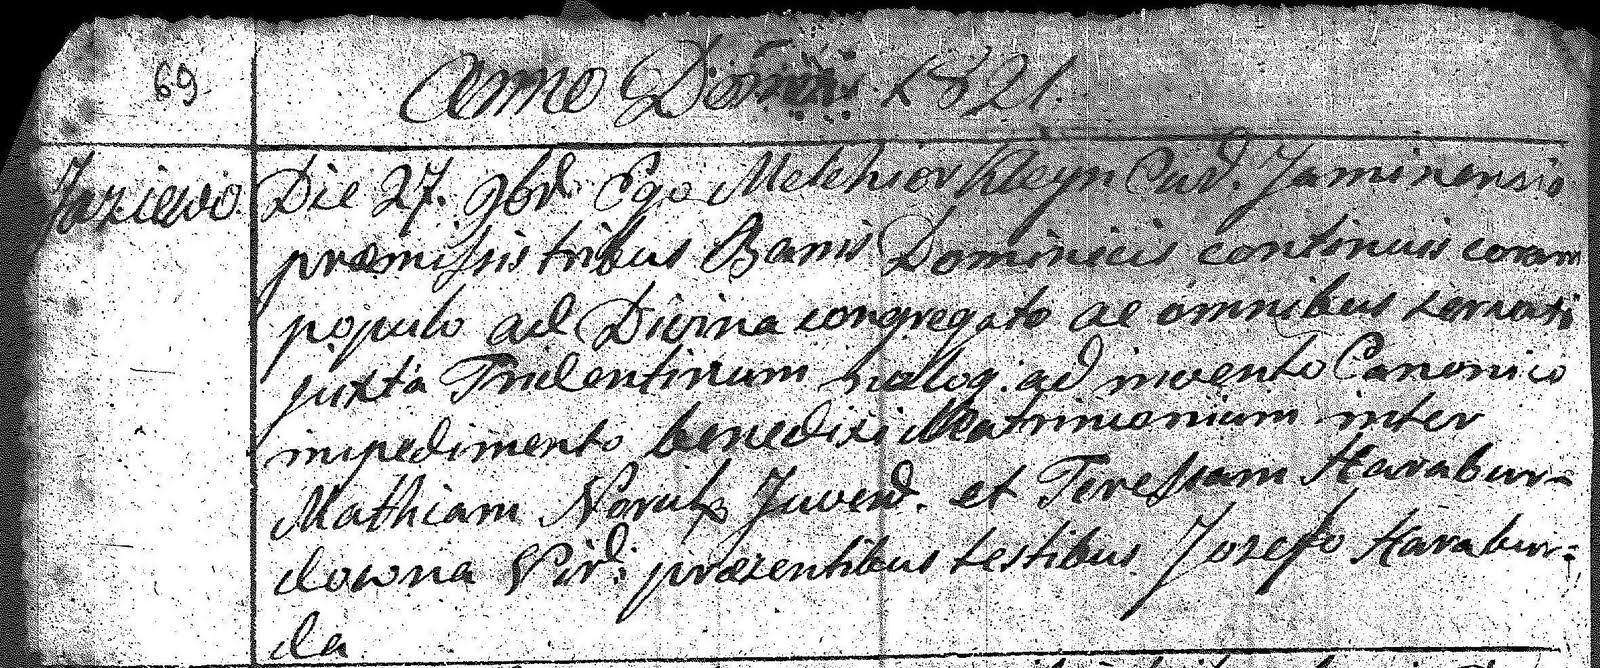 69
Anno Domini 1821.
Jaziewo. Die 27. 9bris Ego Melchior Kleyn Cur. Jaminensis
præmissis tribus Banis Dominicis continuis coram
populo ad Divina congregato ac omnibus servatis
juxta Tridentinum nullog. ad invento Canonico
impedimento benedixi Matrimonium inter
Mathiam Juven. et Teressam Harabur=
downa Vir. præsentibus testibus Jozefo Harabur=
da